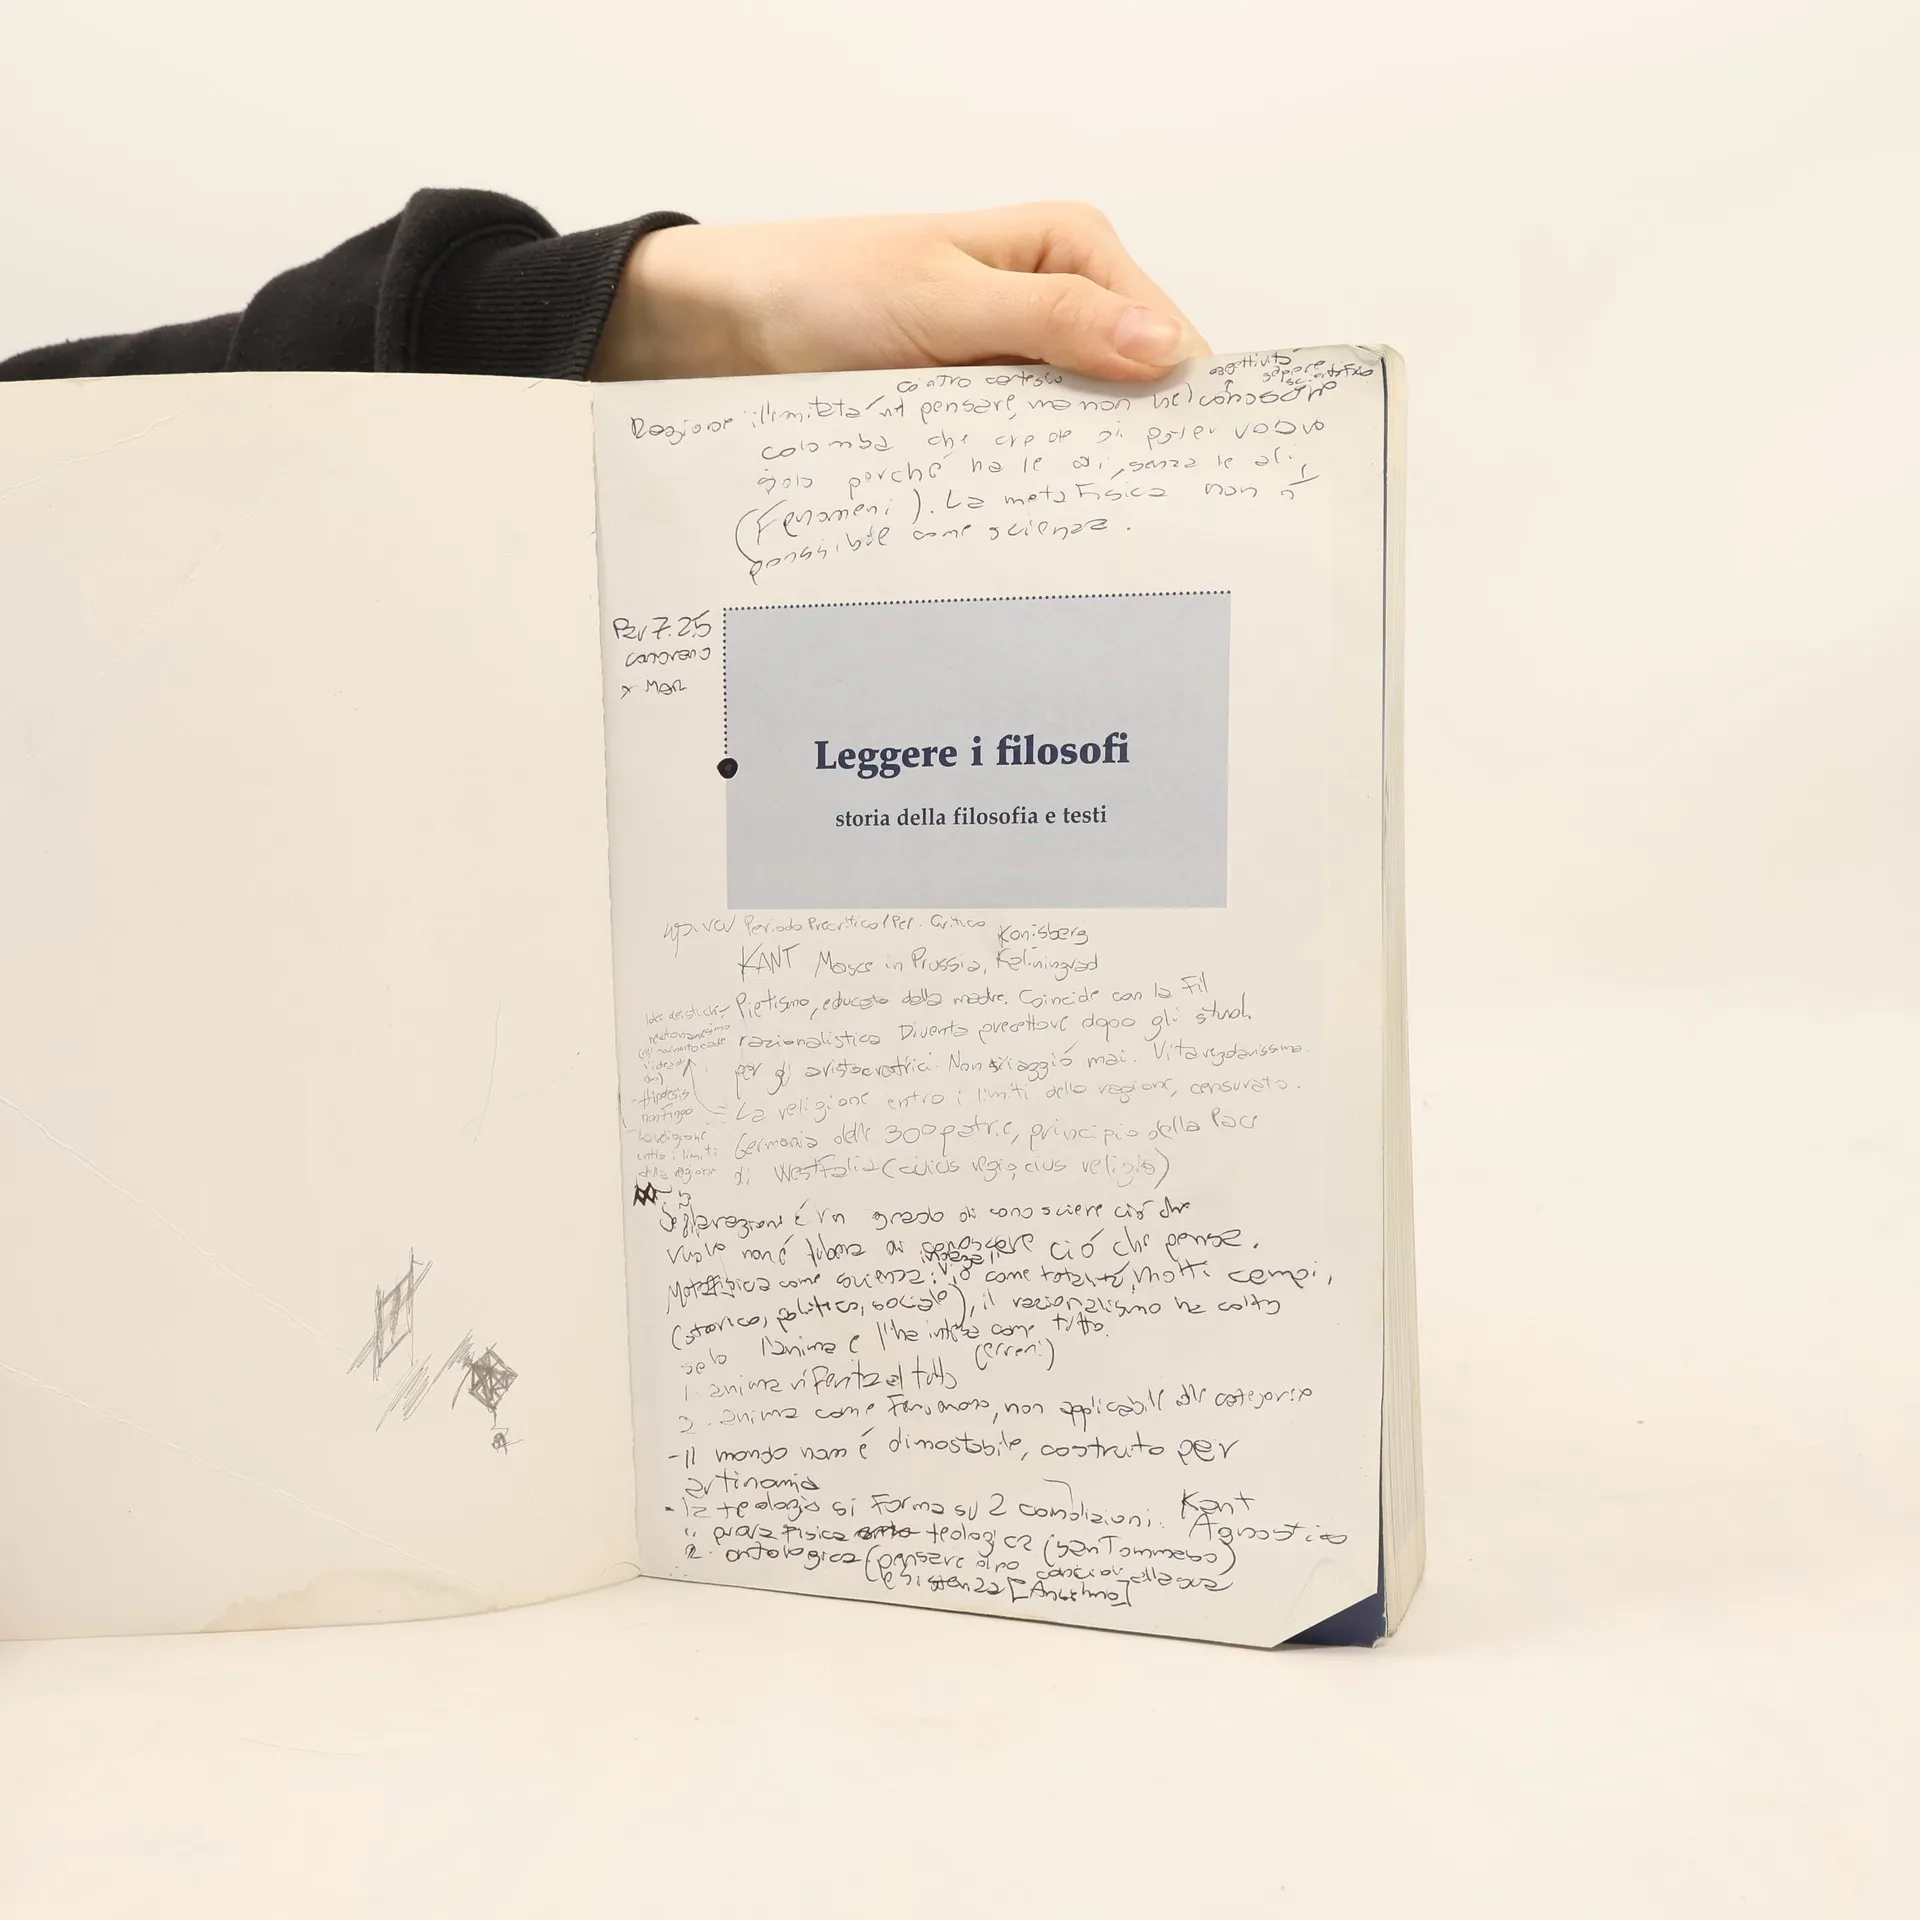 contro cartesio
oggettività
sapere
scientifico
Ragione illimitata nel pensare, ma non nel conoscere
colomba che crede di poter
solo perché ha le ali, senza le ali
(Fenomeni). La metafisica non è
possibile come scienza.
7.25
x MAR
Leggere i filosofi
storia della filosofia e testi
Periodo Precritico/Per. Critico Konisberg
KANT Nasce in Prussia, Kaliningrad
Pietismo, educato dalla madre. Coincide con la Fil
razionalistica Diventa precettore dopo gli studi
per gli aristocratici. Non viaggiò mai. Vita
La religione entro i limiti della ragione, censurato.
Germania delle 300 patrie, principio della Pace
di Westfalia (cuius regio, eius religio)
Hipotesis
non Fingo
La religione
entro i limiti
della ragione
Se la ragione è in grado di conosciere ciò che
vuole non è libera di conoscere ciò che pensa.
Metafisica come scienza: come totalità, molti campi,
(storico, politico, sociale), il razionalismo ha colto
solo l'anima e l'ha intesa come tutto.
(errori)
1. anima riferita al tutto
2. anima come Fenomeno, non applicabile alle categorie
- Il mondo non è dimostabile, costruito per
antinomia
- la teologia si forma su 2 condizioni. Kant
Agnostico
1. prova fisica teologica (San Tommaso)
2. ontologica (pensare
esistenza [Anselmo]